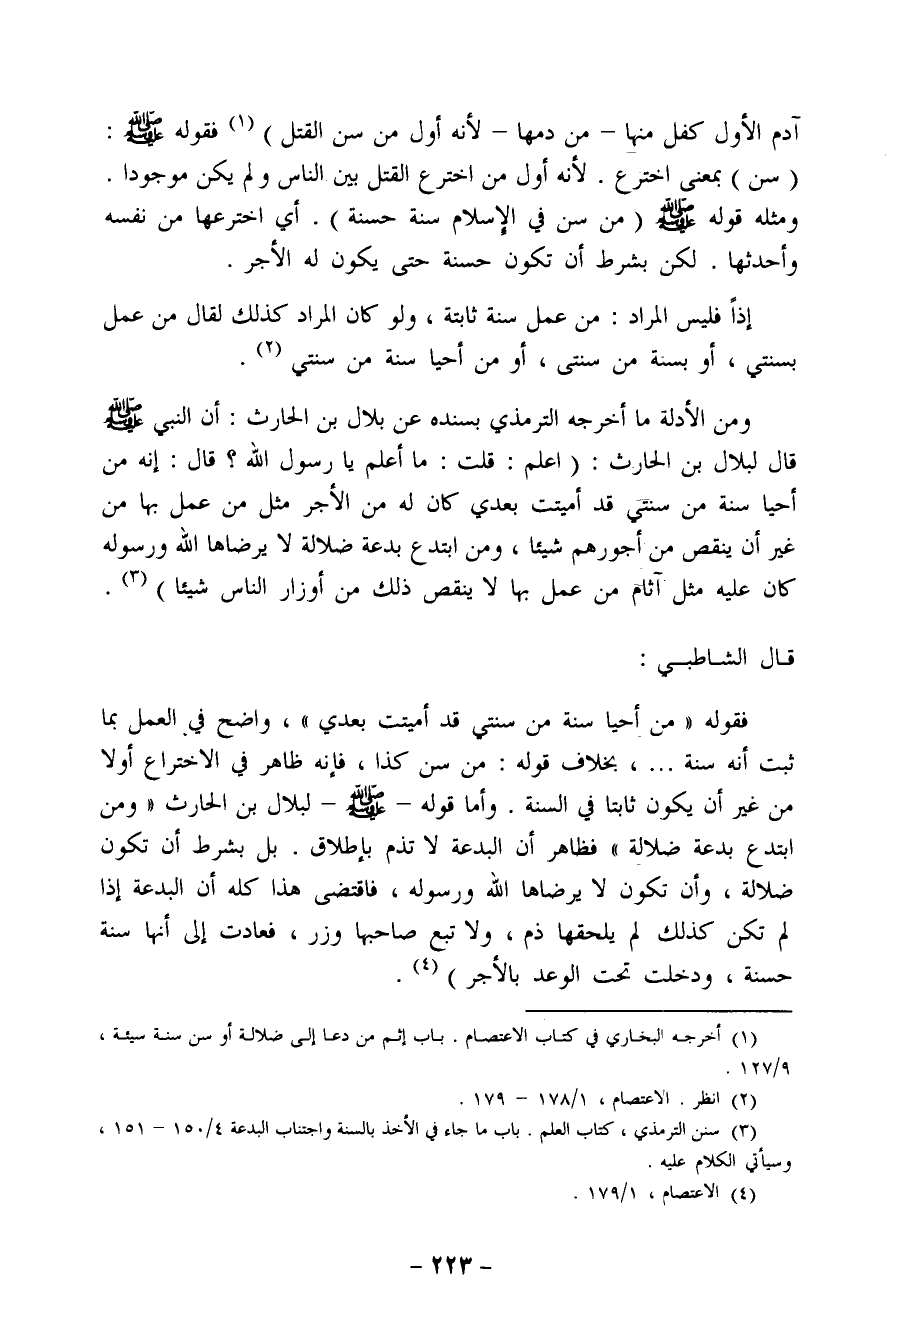 آدم الأول كفل منها – من دمها – لأنه أول من سن القتل ) (١) فقوله ﷺ :
( سن ) بمعنى اخترع . لأنه أول من اخترع القتل بين الناس و لم يكن موجودا .
ومثله قوله ﷺ ( من سن في الإسلام سنة حسنة ) . أي اخترعها من نفسه
وأحدثها . لكن بشرط أن تكون حسنة حتى يكون له الأجر .
إذاً فليس المراد : من عمل سنة ثابتة ، ولو كان المراد كذلك لقال من عمل
بسنتي ، أو بسنة من سنتى ، أو من أحيا سنة من سنتي (٢) .
ومن الأدلة ما أخرجه الترمذي بسنده عن بلال بن الحارث : أن النبي ﷺ
قال لبلال بن الحارث : ( اعلم : قلت : ما أعلم يا رسول الله ؟ قال : إنه من
أحيا سنة من سنتي قد أميتت بعدي كان له من الأجر مثل من عمل بها من
غير أن ينقص من أجورهم شيئا ، ومن ابتدع بدعة ضلالة لا يرضاها الله ورسوله
كان عليه مثل آثام من عمل بها لا ينقص ذلك من أوزار الناس شيئا ) (٣) .
قال الشاطبي :
فقوله « من أحيا سنة من سنتي قد أميتت بعدي » ، واضح في العمل بما
ثبت أنه سنة ... ، بخلاف قوله : من سن كذا ، فإنه ظاهر في الاختراع أولا
من غير أن يكون ثابتا في السنة . وأما قوله – ﷺ – لبلال بن الحارث « ومن
ابتدع بدعة ضلالة » فظاهر أن البدعة لا تذم بإطلاق . بل بشرط أن تكون
ضلالة ، وأن تكون لا يرضاها الله ورسوله ، فاقتضى هذا كله أن البدعة إذا
لم تكن كذلك لم يلحقها ذم ، ولا تبع صاحبها وزر ، فعادت إلى أنها سنة
حسنة ، ودخلت تحت الوعد بالأجر ) (٤) .
(١) أخرجه البخاري في كتاب الاعتصام . باب إثم من دعا إلى ضلالة أو سن سنة سيئة ،
١٢٧/٩ .
(٢) انظر . الاعتصام ، ١٧٨/١ – ١٧٩ .
(٣) سنن الترمذي ، كتاب العلم . باب ما جاء في الأخذ بالسنة واجتناب البدعة ١٥٠/٤ – ١٥١ ،
وسيأتي الكلام عليه .
(٤) الاعتصام ، ١٧٩/١ .
- ٢٢٣ -